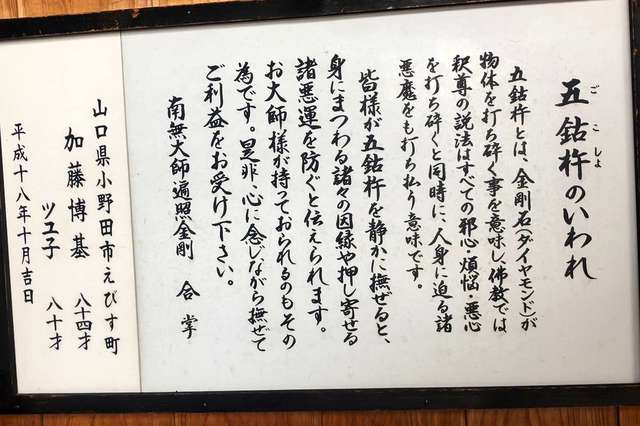 五鈷杵のいわれ
ごこしょ
五鈷杵とは、金剛石(ダイヤモンド)が
物体を打ち砕く事を意味し、佛教では
釈尊の説法はすべての邪心・煩悩・悪心
を打ち砕くと同時に、人身に迫る諸
悪魔をも打ち払う意味です。
皆様が五鈷杵を静かに撫ぜると、
身にまつわる諸々の因縁や押し寄せる
諸悪運を防ぐと伝えられます。
お大師様が持っておられるのもその
為です。是非、心に念じながら撫ぜて
ご利益をお受け下さい。
南無大師遍照金剛 合掌
山口県小野田市えびす町
加藤博基 八十四才
ツユ子 八十才
平成十八年十月吉日